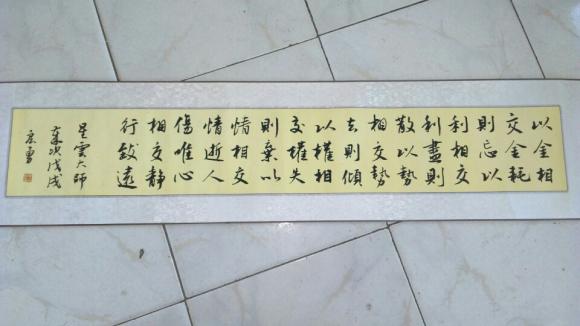 以金相
交金耗
則忘以
利相交
利盡則
散以勢
相交勢
去則傾
以權相
交權失
則棄以
情相交
情逝人
傷唯心
相交靜
行致遠
星雲大師
歲次戊戌